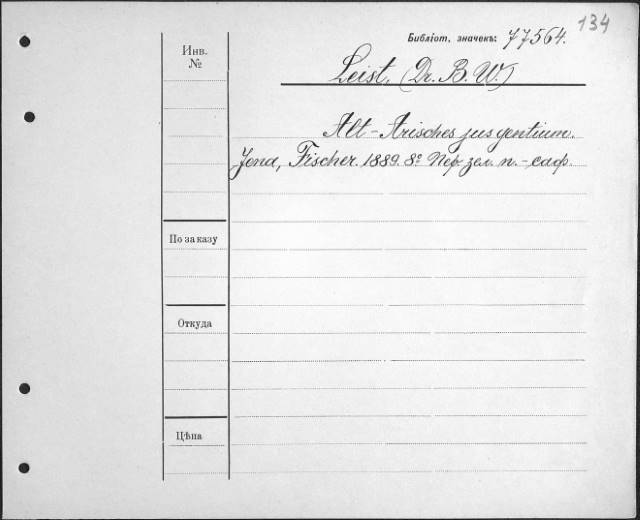 134
Библіот. значекъ: 77564.
Инв. №
Leist, (Dr. B. W.)
Alt-Arisches jus gentium.
Jena, Fischer. 1889. 8º Пер. зел. п.-саф.
По заказу
Откуда
Цѣна